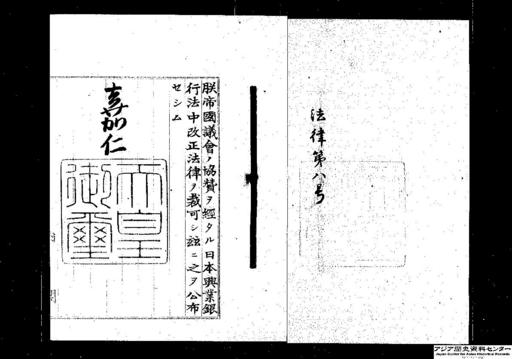 法律第八号
朕帝國議會ノ協賛ヲ經タル日本興業銀
行法中改正法律ヲ裁可シ茲ニ之ヲ公布
セシム
嘉仁
天皇
御璽
アジア歴史資料センター
Japan Center for Asian Historical Records